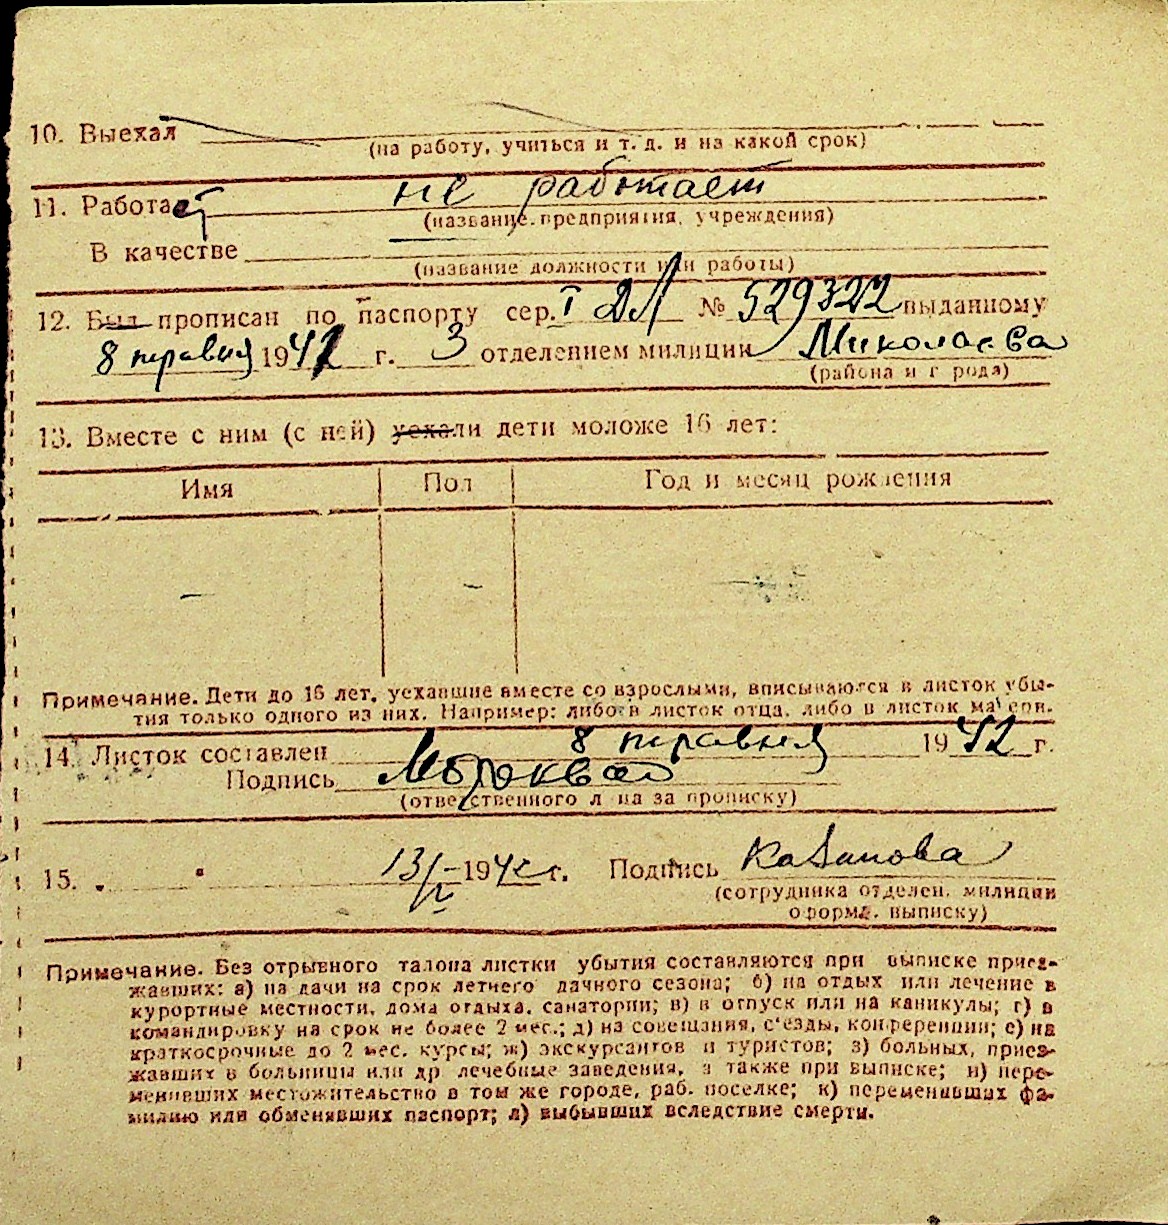 10. Выехал
(на работу, учиться и т. д. и на какой срок)
11. Работает не работает
(название предприятия, учреждения)
В качестве
(название должности или работы)
12. Был прописан по паспорту сер. I ДЛ № 529322 выданному
8 травня 1942 г. 3 отделением милиции Миколаєва
(района и города)
13. Вместе с ним (с ней) уехали дети моложе 16 лет:
Имя Пол Год и месяц рождения
— —
Примечание. Дети до 16 лет, уехавшие вместе со взрослыми, вписываются в листок убы-
тия только одного из них. Например: либо в листок отца, либо в листок матери.
14. Листок составлен 8 травня 1942 г.
Подпись
(ответственного лица за прописку)
15. 13/V 1942 г. Подпись
(сотрудника отделен. милиции
оформл. выписку)
Примечание. Без отрывного талона листки убытия составляются при выписке приез-
жавших: а) на дачи на срок летнего дачного сезона; б) на отдых или лечение в
курортные местности, дома отдыха, санатории; в) в отпуск или на каникулы; г) в
командировку на срок не более 2 мес.; д) на совещания, с'езды, конференции; е) на
краткосрочные до 2 мес. курсы; ж) экскурсантов и туристов; з) больных, приез-
жавших в больницы или др лечебные заведения, а также при выписке; и) пере-
менивших местожительство в том же городе, раб. поселке; к) переменивших фа-
милию или обменявших паспорт; л) выбывших вследствие смерти.